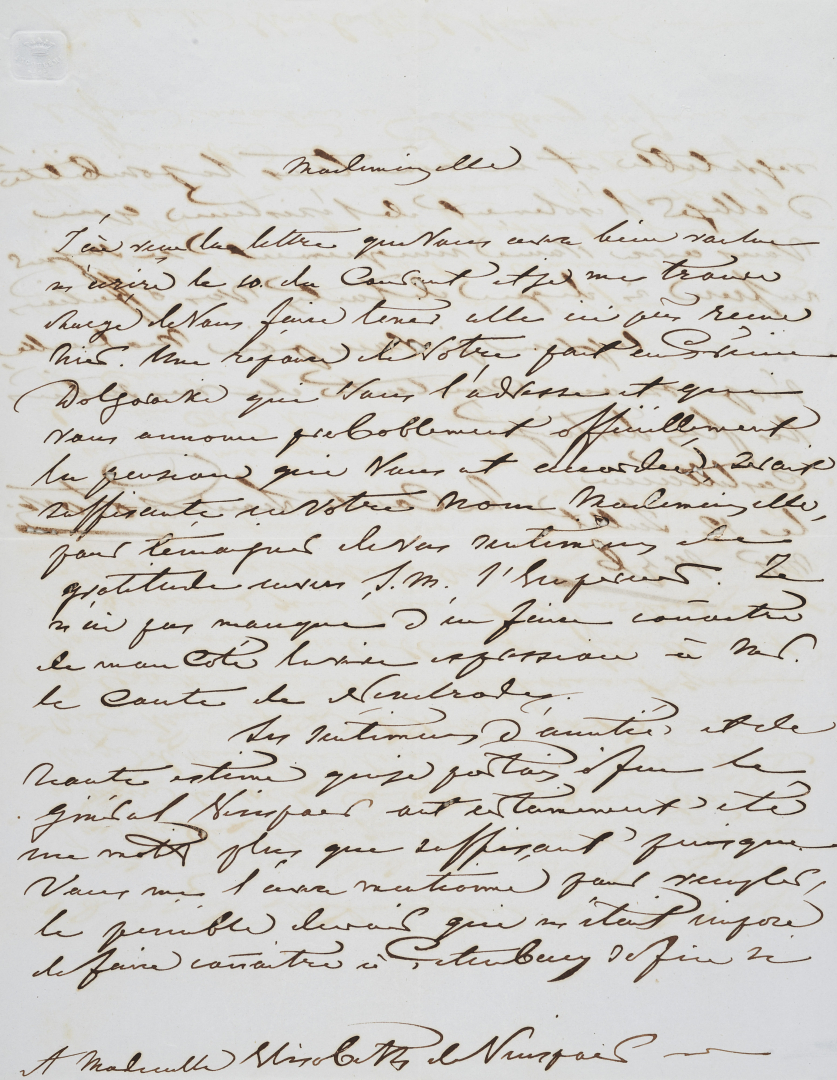 Mademoiselle
J'ai reçu la lettre que Vous avez bien voulue
m'écrire le 10. du Courant et je me trouve
chargé de Vous faire tenir celle ci près reçue
hier. Une réponse de Votre part au Prince
Dolgorouki qui Vous l'adresse et qui
vous annonce probablement officiellement
la pension qui Vous est accordée, serait
suffisante en Votre nom Mademoiselle,
pour témoigner de vos sentimens de
gratitude envers S. M. l'Empereur. Je
n'ai pas manqué d'en faire connaitre
de mon coté la vive expression à Mr.
le Comte de Nesselrode.
Les sentimens d'amitié et de
haute estime que je portais à feu le
général ont certainement été
un motif plus que suffisant puisque
Vous me l'avez mentionné pour remplir
le penible devoir qui m'était imposé
de faire connaitre à Petersbourg
A Mademoiselle Elisabeth de